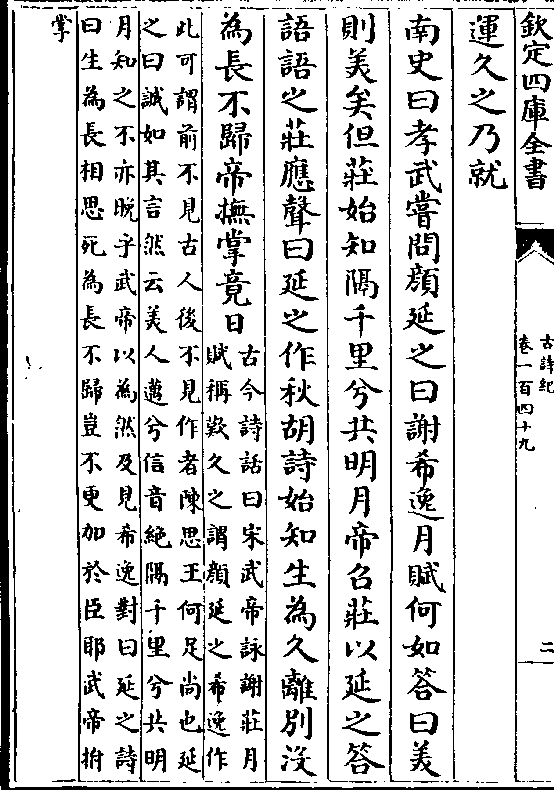 欽定四庫全書
古詩紀
卷一百四十九
二
運久之乃就
南史曰孝武嘗問顔延之曰謝希逸月賦何如答曰美
則美矣但莊始知隔千里兮共明月帝召莊以延之答
語語之莊應聲曰延之作秋胡詩始知生為久離別沒
為長不歸帝撫掌竟日
古今詩話曰宋武帝詠謝莊月
賦稱歎久之謂顔延之希逸作
此可謂前不見古人後不見作者陳思王何足尚也延
之曰誠如其言然云美人邁兮信音絶隔千里兮共明
月知之不亦晩乎武帝以為然及見希逸對曰延之詩
曰生為長相思死為長不歸豈不更加於臣耶武帝拊
掌